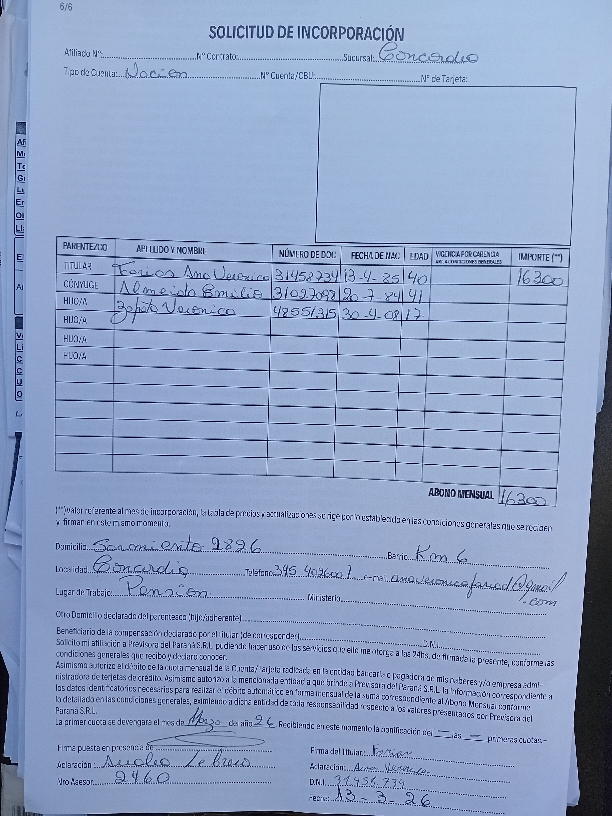 6/6
SOLICITUD DE INCORPORACIÓN
Afiliado Nº: Nº Contrato: Sucursal: Concordia
Tipo de Cuenta: Nación Nº Cuenta/CBU: Nº de Tarjeta:
PARENTEZCO APELLIDO Y NOMBRE NÚMERO DE DOC FECHA DE NAC EDAD VIGENCIA POR CARENCIA IMPORTE (**)
TITULAR Farias Ana Veronica 31458734 13-4-85 40 16300
CÓNYUGE Almeida Emilio 31027092 20-7-84 41
HIJO/A Zapata Veronica 48551315 30-4-08 17
HIJO/A
HIJO/A
HIJO/A
ABONO MENSUAL 16300
(**)Valor referente al mes de incorporación, la tabla de precios y actualizaciones se rige por lo establecido en las condiciones generales que se reciben
y firman en este mismo momento.
Domicilio Sarmiento 2826 Barrio: Km 6
Localidad Concordia Teléfono 345
Lugar de Trabajo: Pension Ministerio
Otro Domicilio declarado del parentesco (hijo/adherente)
Beneficiario de la compensación declarado por el titular (de corresponder) D.N.I.
Solicito mi afiliación a Previsora del Paraná S.R.L., pudiendo hacer uso de los servicios que ello me otorga a las 24hs. de firmada la presente, conforme las
condiciones generales que recibo y declaro conocer.
Asimismo autorizo el débito de la cuota mensual de la Cuenta/ tarjeta radicada en la entidad bancaria o pagadora de mis haberes y/o empresa admi-
nistradora de tarjetas de crédito. Asimismo autorizo a la mencionada entidad a que brinde a Previsora del Paraná S.R.L. la información correspondiente a
los datos identificatorios necesarios para realizar el débito automático en forma mensual de la suma correspondiente al Abono Mensual conforme
lo detallado en las condiciones generales, eximiendo a dicha entidad de toda responsabilidad con respecto a los valores presentados por Previsora del
Paraná S.R.L.
La primer cuota se devengará el mes de Marzo de año 26 Recibiendo en este momento la bonificación de las primeras cuotas.-
Firma puesta en presencia de Firma del Titular: Farias
Aclaración: Aclaración: Ana Veronica
Nro Asesor 2460 D.N.I.
Fecha: 13-3-26